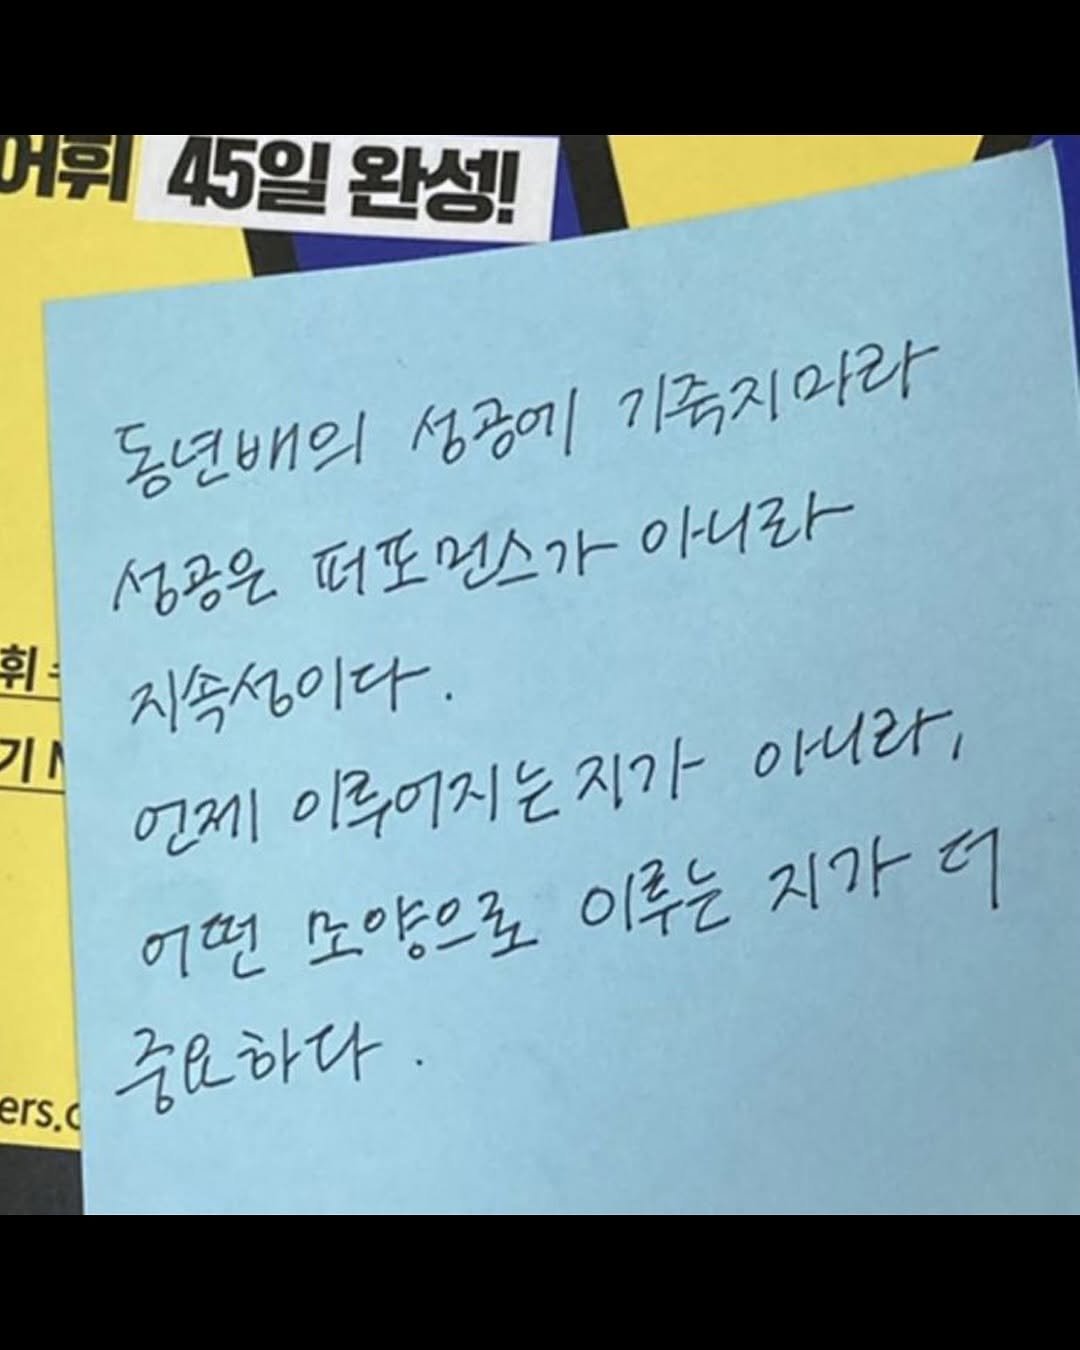 어휘 45일 완성!
동년배의 성공에 기죽지마라
성공은 퍼포먼스가 아니라
지속성이다.
언제 이루어지는지가 아니라,
어떤 모양으로 이루는 지가 더
중요하다.
휘
기
ers.c